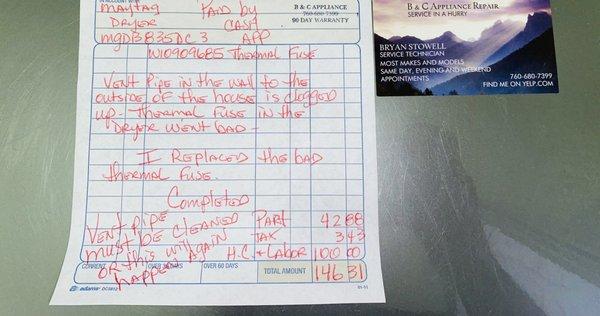 IN ACCOUNT WITH
Maytag Paid by
Dryer Cash
MGDB835DC3 APP
B & C APPLIANCE
760-680-7399
90 DAY WARRANTY
W10909685 Thermal Fuse
Vent pipe in the wall to the
outside of the house is clogged
up - Thermal Fuse in the
Dryer went bad -
I Replaced the bad
thermal fuse.
Completed
Vent pipe
must be cleaned
or this will
happen again
Part 42 88
Tax 3 43
H.C. + Labor 100 00
CURRENT
OVER 60 DAYS
TOTAL AMOUNT 146 31
adams DC5812
01-11
B & C APPLIANCE REPAIR
SERVICE IN A HURRY
BRYAN STOWELL
SERVICE TECHNICIAN
MOST MAKES AND MODELS
SAME DAY, EVENING AND WEEKEND
APPOINTMENTS
760-680-7399
FIND ME ON YELP.COM